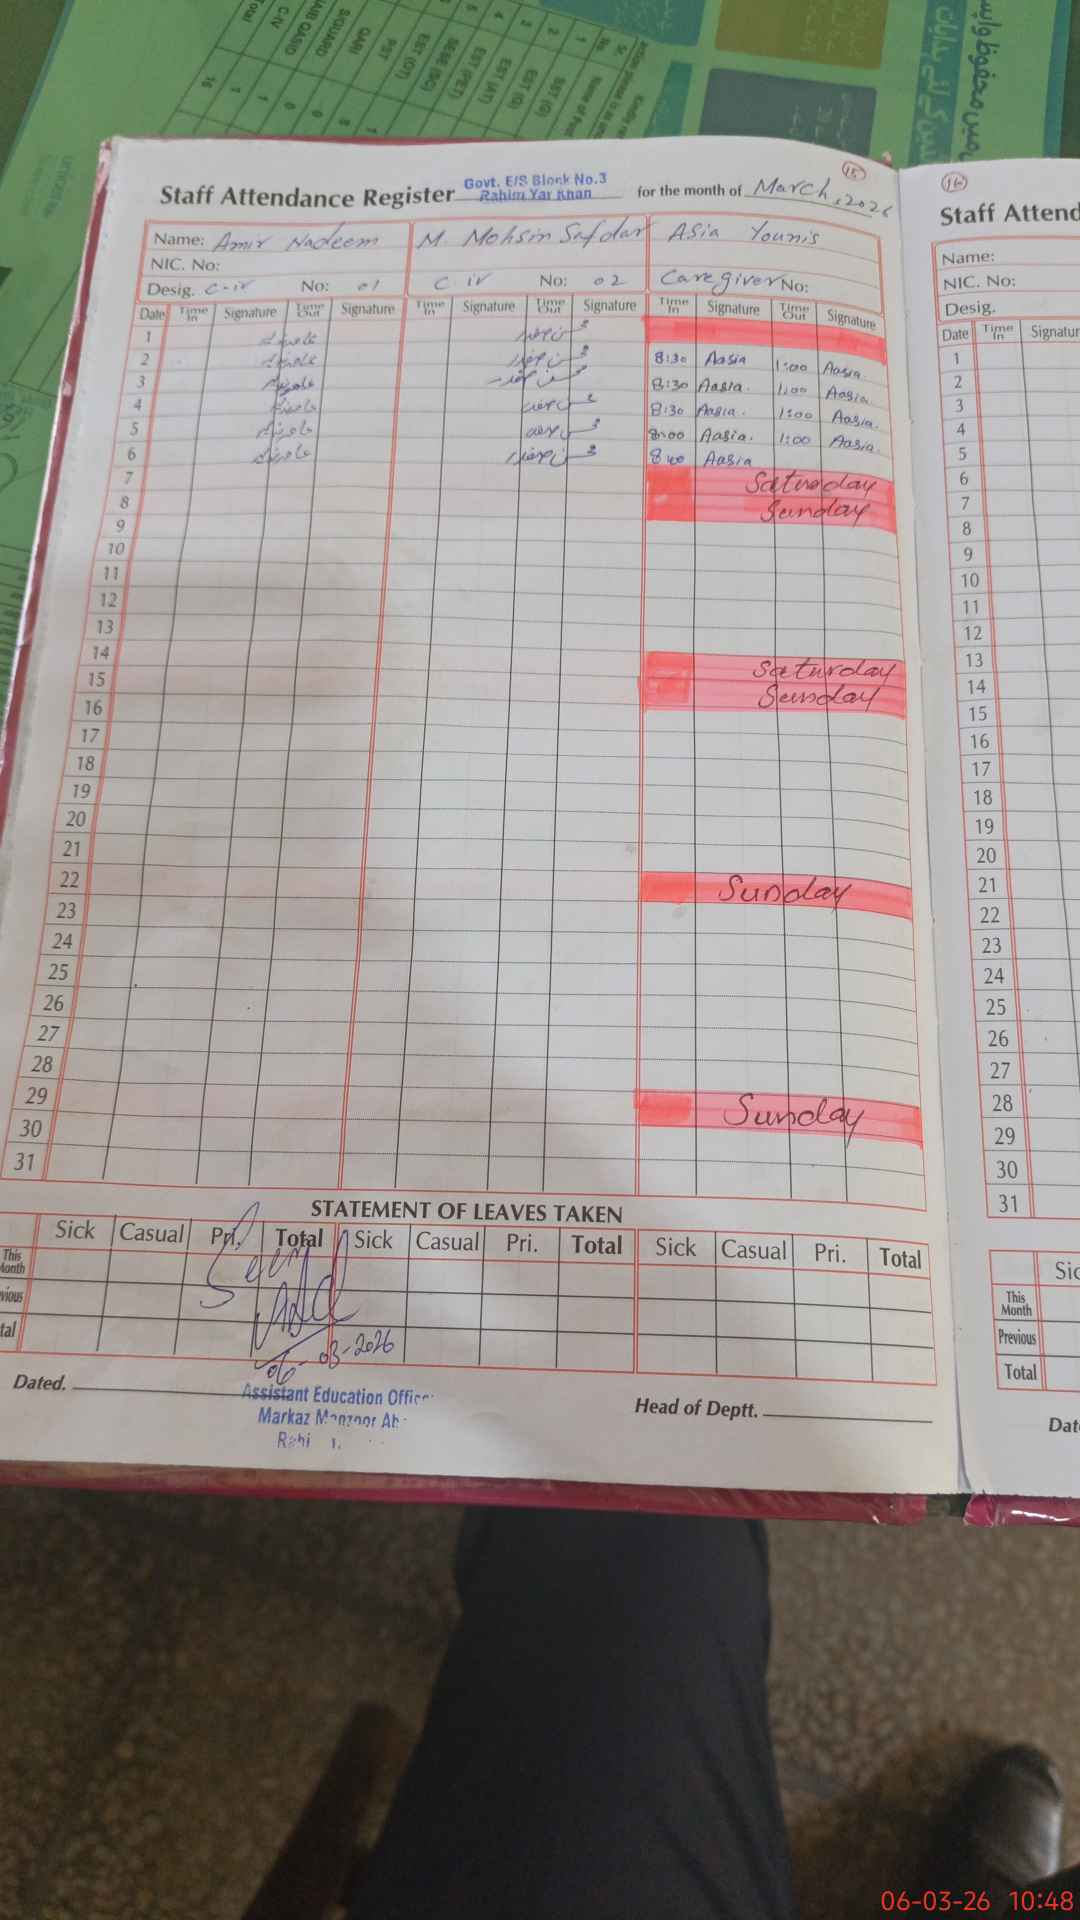 Sr. No.
Name of Post
1
SST (G)
2
EST (G)
3
EST (AT)
4
EST (PET)
SESE (SC)
EST (OT)
PST
QARI
S/GUARD
NAIB QASID
C-IV
Total
16
میں محفوظ واپسی
15
Staff Attendance Register
Govt. E/S Block No.3
Rahim Yar Khan
for the month of March, 2026
Name: Amir Nadeem M. Mohsin Safdar Asia Younis
NIC. No:
Desig. C-iv No: 01 C iv No: 02 Caregiver No:
Date Time In Signature Time Out Signature Time In Signature Time Out Signature Time In Signature Time Out Signature
1
2 8:30 Aasia 1:00 Aasia.
3 8:30 Aasia. 1:00 Aasia.
4 8:30 Aasia. 1:00 Aasia.
5 8:00 Aasia. 1:00 Aasia.
6 8:00 Aasia
7 Saturday
8 Sunday
9
10
11
12
13
14 Saturday
15 Sunday
16
17
18
19
20
21
22 Sunday
23
24
25
26
27
28
29 Sunday
30
31
STATEMENT OF LEAVES TAKEN
Sick Casual Pri. Total Sick Casual Pri. Total Sick Casual Pri. Total
This Month
vious
tal
Seen
06-03-2026
Dated.
Assistant Education Office
Markaz Manzoor Ab
Rahi
Head of Deptt.
16
Staff Attend
Name:
NIC. No:
Desig.
Date Time In Signatur
1
2
3
4
5
6
7
8
9
10
11
12
13
14
15
16
17
18
19
20
21
22
23
24
25
26
27
28
29
30
31
Sic
This Month
Previous
Total
Dat
06-03-26 10:48